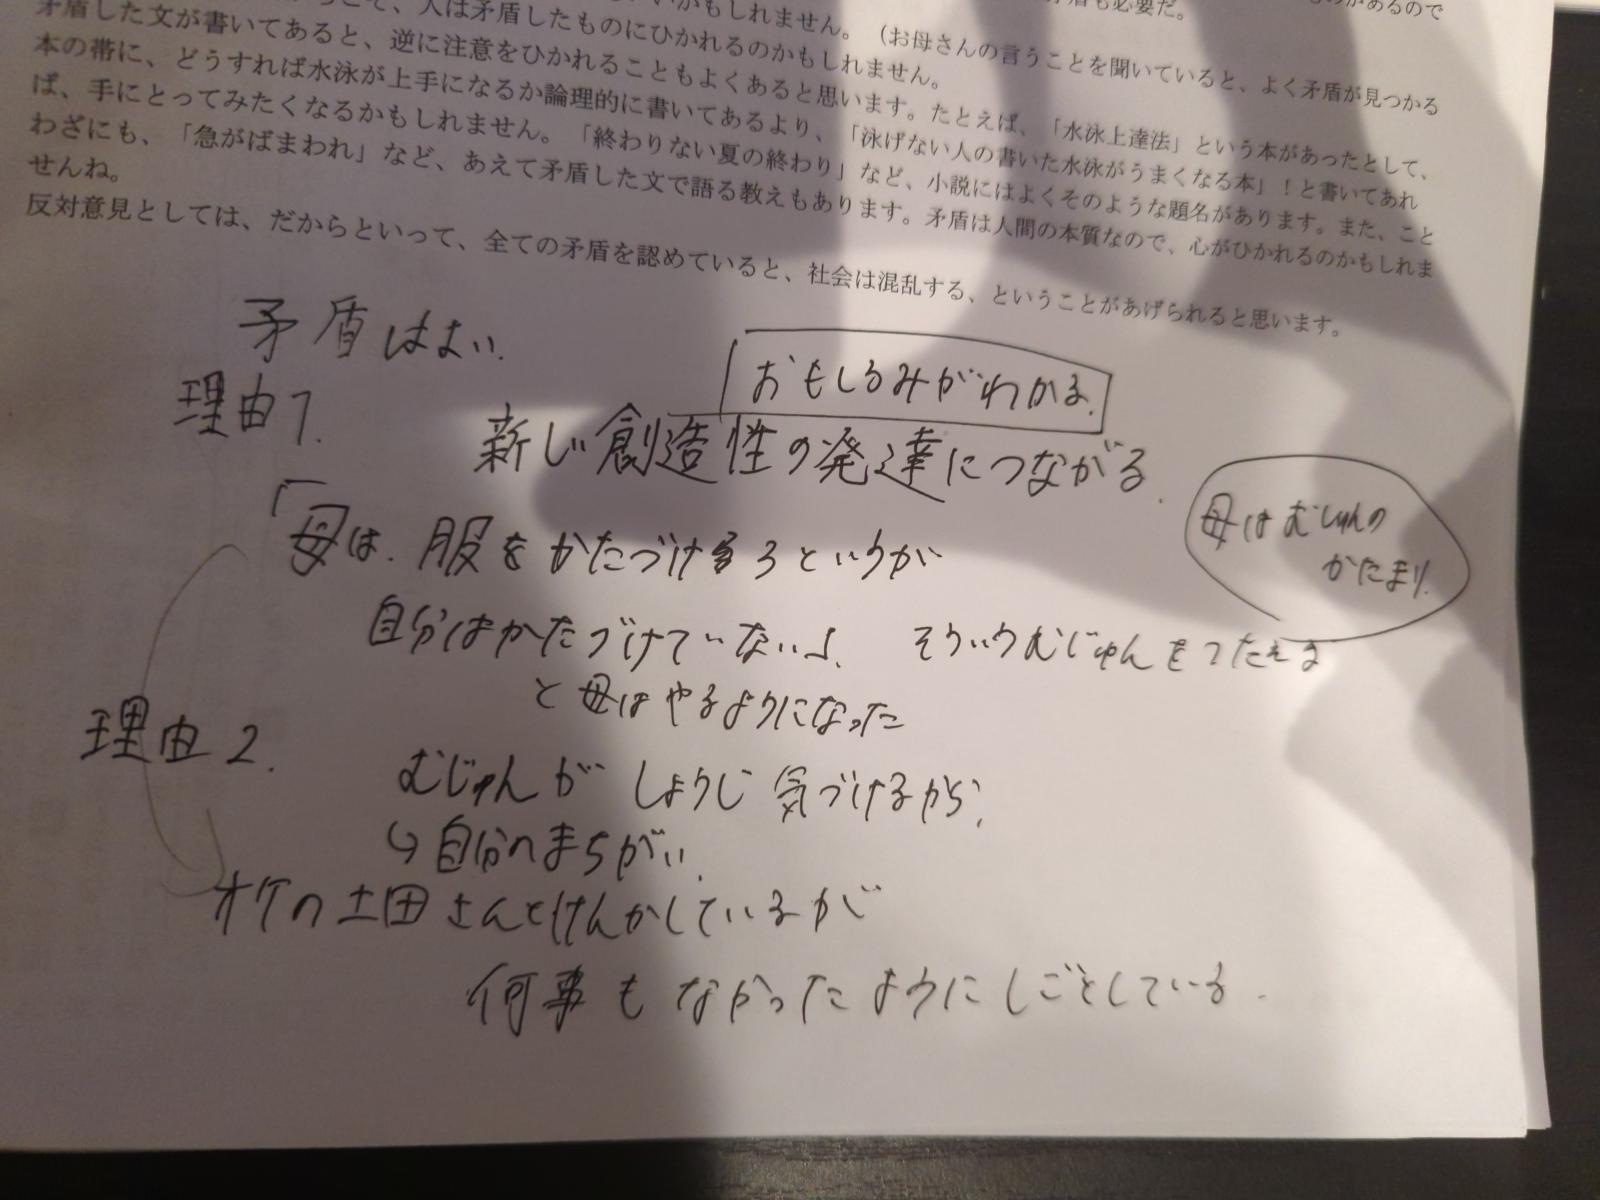 矛盾も必要だ。
ものがあるので
こそ、人は矛盾したものにひかれるのかもしれません。（お母さんの言うことを聞いていると、よく矛盾が見つかる
いかもしれません。
矛盾した文が書いてあると、逆に注意をひかれることもよくあると思います。たとえば、「水泳上達法」という本があったとして、
本の帯に、どうすれば水泳が上手になるか論理的に書いてあるより、「泳げない人の書いた水泳がうまくなる本」！と書いてあれ
ば、手にとってみたくなるかもしれません。「終わりない夏の終わり」など、小説にはよくそのような題名があります。また、こと
わざにも、「急がばまわれ」など、あえて矛盾した文で語る教えもあります。矛盾は人間の本質なので、心がひかれるのかもしれま
せんね。
反対意見としては、だからといって、全ての矛盾を認めていると、社会は混乱する、ということがあげられると思います。
矛盾はよい.
理由1.
おもしろみがわかる.
新しい創造性の発達につながる.
「母は.服をかたづけろというが
母はむじゅんの
かたまり.
自分はかたづけていない」. そういうむじゅんをつたえる
と母はやるようになった
理由2.
むじゅんがしょうじ気づけるから.
↳自分のまちがい.
オケの土田さんとけんかしているが
何事もなかったようにしごとしている.